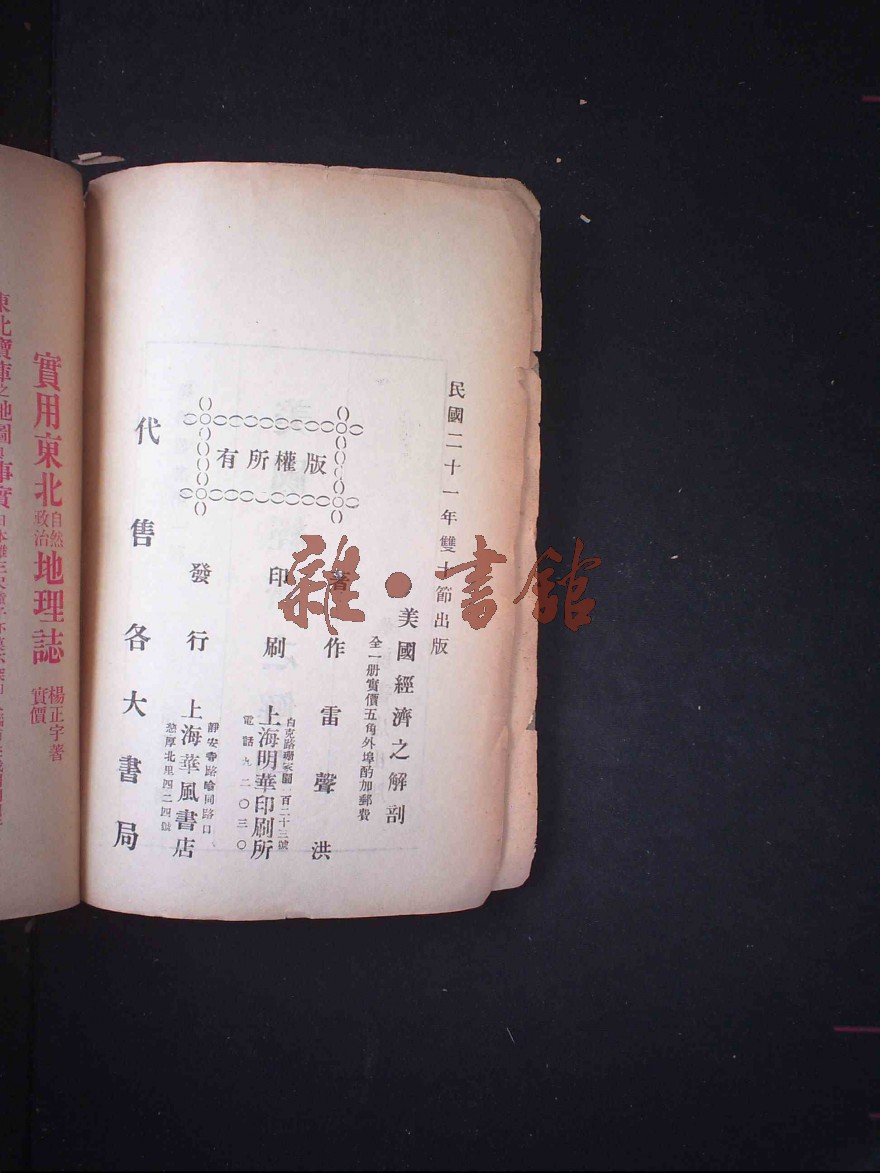 民國二十一年雙十節出版
美國經濟之解剖
全一册實價五角外埠酌加郵費
版權所有
著作 雷聲洪
印刷 上海明華印刷所
白克路珊家園一百二十三號
電話九二〇三〇
發行 上海華風書店
靜安寺路哈同路口
慈厚北里四二四號
代售各大書局
雜·書館
實用東北自然政治地理誌
楊正宇著
實價
東北寶庫之地圖
事實